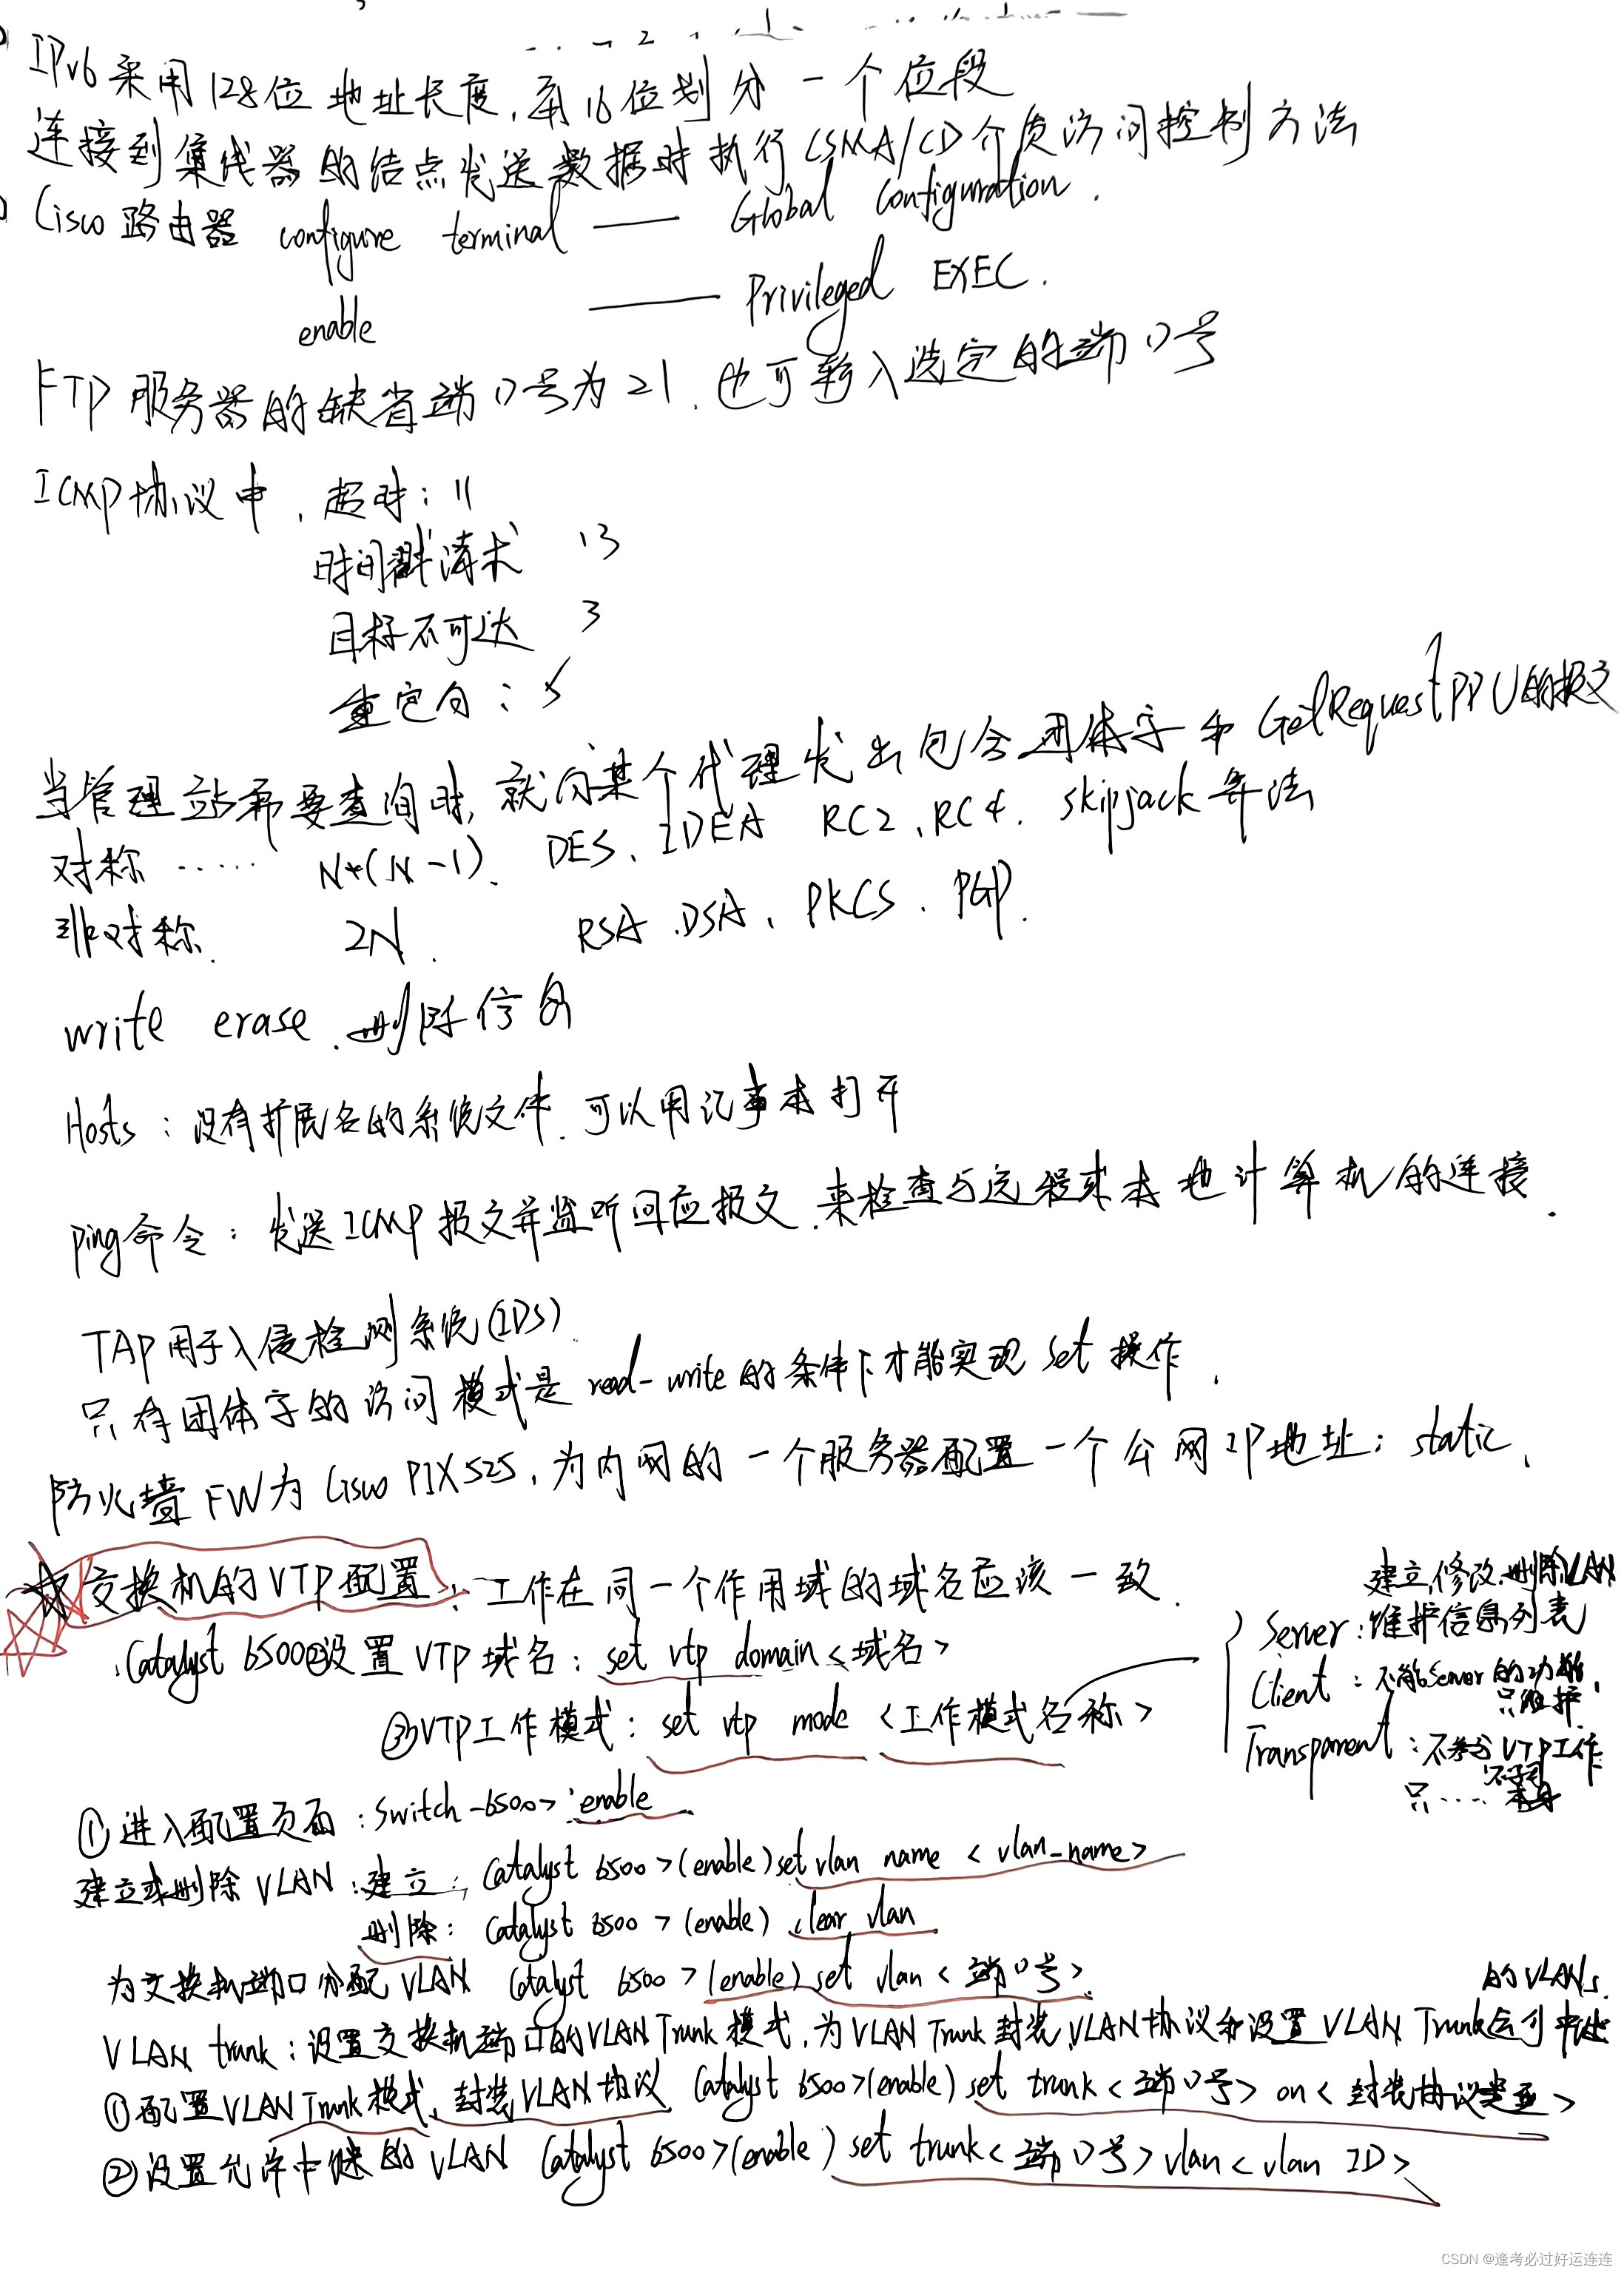 IPv6采用128位地址长度,每16位划分一个位段
连接到集线器的结点发送数据时执行CSMA/CD介质访问控制方法
Cisco路由器 configure terminal —— Global configuration.
enable —— Privileged EXEC.
FTP服务器的缺省端口号为21.也可输入选定的端口号
ICMP协议中,超时:11
时间戳请求 13
目标不可达 3
重定向:5
当管理站需要查询时,就向某个代理发出包含团体字和GetRequestPPU的报文
对称 ······ N*(N-1). DES、IDEA RC2、RC4. skipjack算法
非对称. 2N. RSA.DSA、PKCS.PGP.
write erase.删除信息
Hosts:没有扩展名的系统文件.可以用记事本打开
ping命令:发送ICMP报文并监听回应报文.来检查与远程或本地计算机的连接.
TAP用于入侵检测系统(IDS)
只有团体字的访问模式是read-write的条件下才能实现set操作.
防火墙FW为Cisco PIX525,为内网的一个服务器配置一个公网IP地址:static.
交换机的VTP配置:工作在同一个作用域的域名应该一致.
Catalyst 6500②设置VTP域名:set vtp domain <域名>
③VTP工作模式:set vtp mode <工作模式名称>
建立.修改.删除VLAN
Server:维护信息列表
Client:不能Server的功能,
只维护.
Transparent:不参与VTP工作
只····本身
①进入配置页面:Switch-6500> enable
建立或删除VLAN:建立:Catalyst 6500>(enable)set vlan name <vlan_name>
删除:Catalyst 6500>(enable) clear vlan
为交换机端口分配VLAN Catalyst 6500>(enable)set vlan<端口号>
的VLANs.
VLAN trunk:设置交换机端口的VLAN Trunk模式,为VLAN Trunk封装VLAN协议和设置VLAN Trunk允许中继
①配置VLAN Trunk模式、封装VLAN协议 Catalyst 6500>(enable)set trunk<端口号> on<封装协议类型>
②设置允许中继的VLAN Catalyst 6500>(enable)set trunk<端口号>vlan<vlan ID>
CSDN @逢考必过好运连连